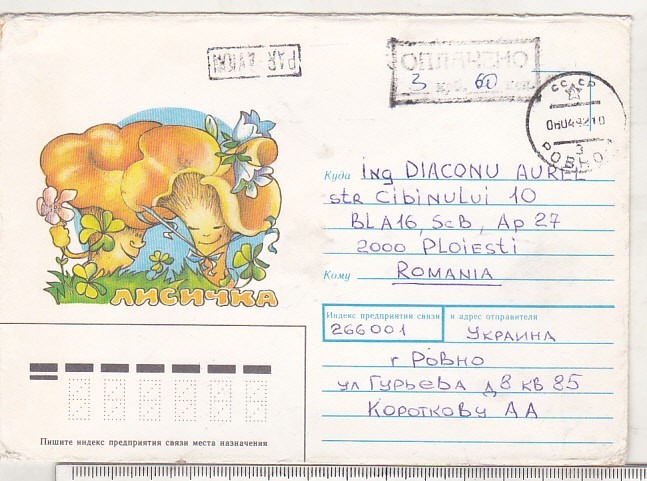 PAR AVION
ОПЛАЧЕНО
3 руб. 60 коп.
СССР
060492 10
3
РОВНО
Куда ing DIACONU AUREL
str Cibinului 10
BLA16, ScB, Ap 27
2000 PLOIESTI
Кому ROMANIA
ЛИСИЧКА
Индекс предприятия связи и адрес отправителя
266001 УКРАИНА
г РОВНО
ул ГУРЬЕВА д8 кв 85
КОРОТКОВУ АА
Пишите индекс предприятия связи места назначения